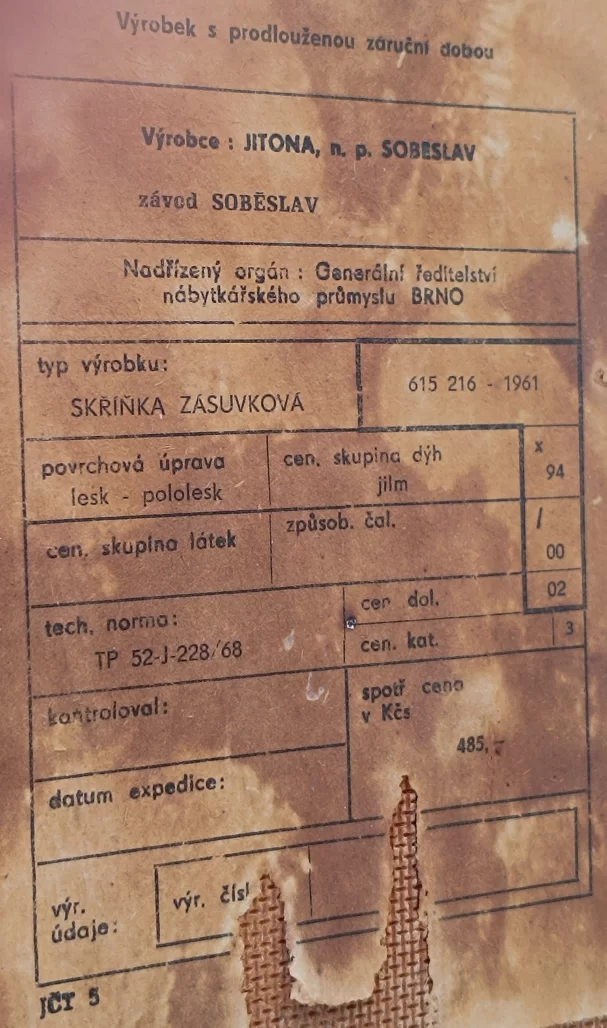 Výrobek s prodlouženou záruční dobou
Výrobce : JITONA, n. p. SOBESLAV
závod SOBĚSLAV
Nadřízený orgán : Generální ředitelství
nábytkářského průmyslu BRNO
typ výrobku:
SKŘÍŇKA ZÁSUVKOVÁ
615 216 - 1961
povrchová úprava
lesk - pololesk
cen. skupina dýh
jilm
x
94
cen. skupina látek
způsob. čal.
/
00
tech. norma:
TP 52-J-228/68
cen dol.
02
cen. kat.
3
kontroloval:
spotř cena
v Kčs
485,-
datum expedice:
výr.
údaje:
výr. čísl
JČT 5